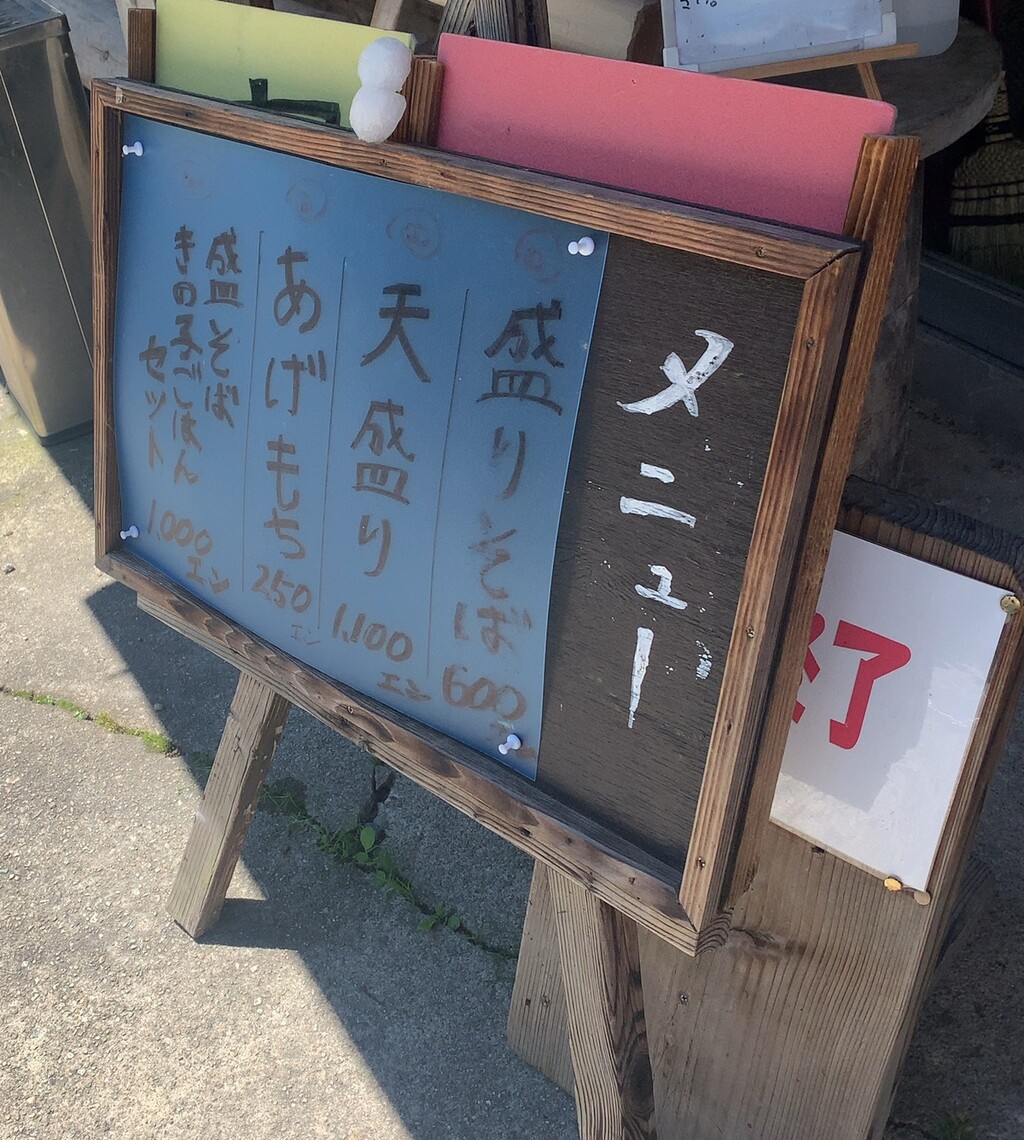 メニュー
盛りそば
600
天盛り
1,100
エン
あげもち
250
エン
盛そば
きの子ごはん
セット
1,000
エン
終了